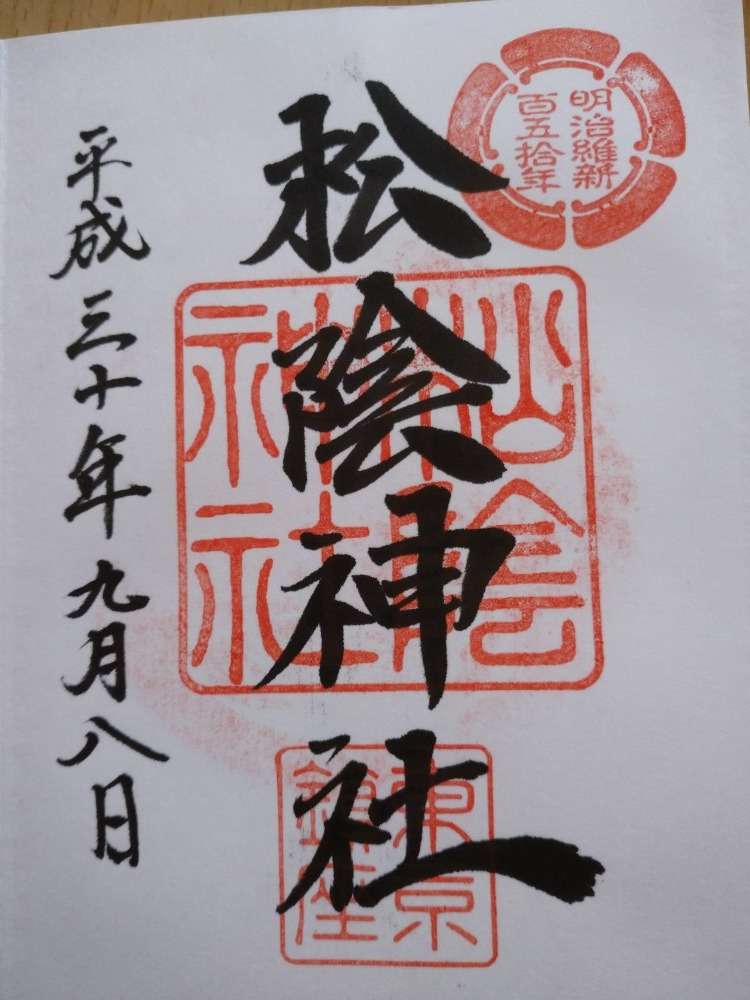 明治維新
百五拾年
松陰神社
松陰神社
東京
鎮座
平成三十年九月八日